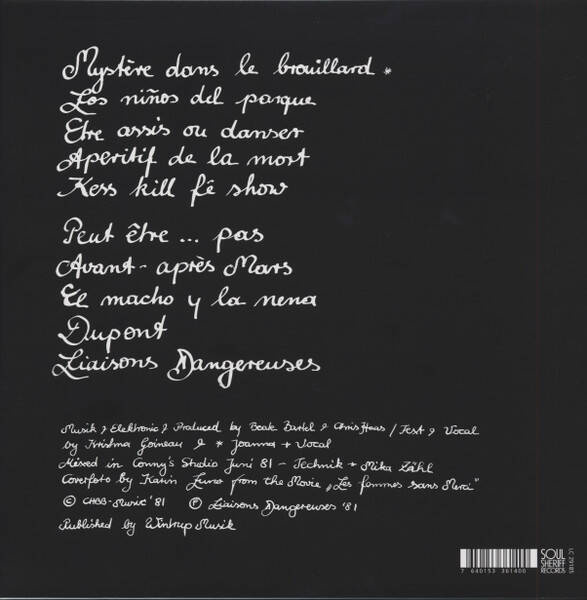 Mystère dans le brouillard *
Los niños del parque
Etre assis ou danser
Aperitif de la mort
Kess kill fê show
Peut être ... pas
Avant-après Mars
El macho y la nena
Dupont
Liaisons Dangereuses
Musik & Elektronic & Produced by Beate Bartel & Chris Haas / Text & Vocal
by Krishna Goineau & * Joanna + Vocal
Mixed in Conny's Studio Juni 81 – Technik + Mika Zähl
Coverfoto by Katin from the Movie „Les femmes sans Merci"
© CHBB-Music '81 Ⓟ Liaisons Dangereuses '81
Published by Wintrup Musik
7 640153 361400
SOUL
SHERIFF
RECORDS
LC 29185